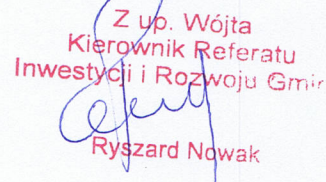 Z up. Wójta
Kierownik Referatu
Inwestycji i Rozwoju Gmin
Ryszard Nowak